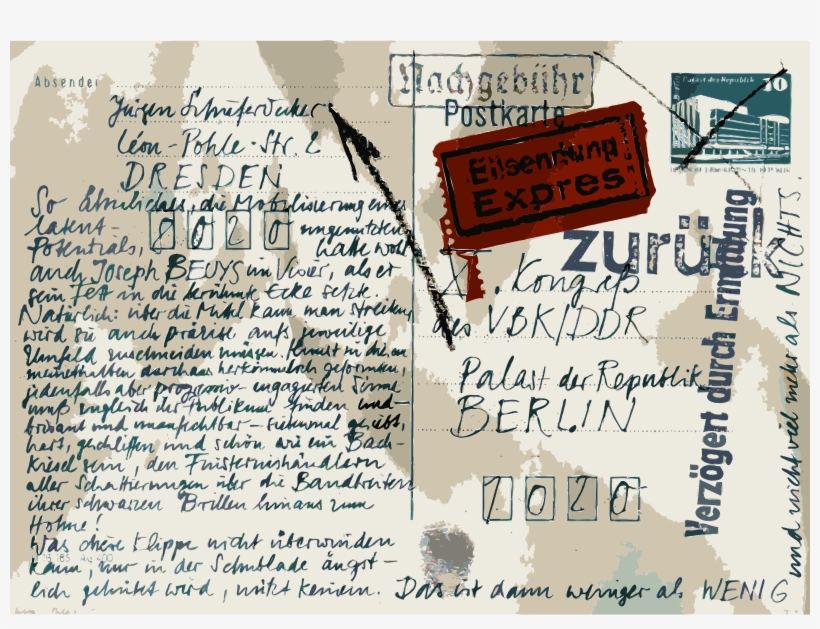 Absender
Jürgen Schieferdecker
Léon-Pohle-Str. 2
DRESDEN
8020
So Ähnliches, die Mobilisierung eines
latent- ungenutzten
Potentials, hatte wohl
auch Joseph BEUYS im Visier, als er
sein Fett in die berühmte Ecke setzte.
Natürlich: über die Mittel kann man streiten
wird sie auch präzise aufs jeweilige
Umfeld zuschneiden müssen. Kunst in diesem
meinethalben durchaus herkömmlich geformten,
jedenfalls aber progressiv-engagierten Sinne
muß zugleich ihr Publikum finden und
brisant und unanfechtbar - siebenmal gesiebt,
hart, geschliffen und schön wie ein Bach-
kiesel sein, den Finsternishändlern
aller Schattierungen über die Bandbreiten
ihrer schwarzen Brillen hinaus zum
Hohne!
Was diese Klippe nicht überwinden
kann, nur in der Schublade ängst-
lich gehütet wird, nützt keinem. Das ist dann weniger als WENIG
und nicht viel mehr als NICHTS.
Nachgebühr
Postkarte
Eilsendung
Expres
Palast der Republik
10
zurück
X. Kongreß
des VBK/DDR
Palast der Republik
BERLIN
1020
Verzögert durch Ermittlung